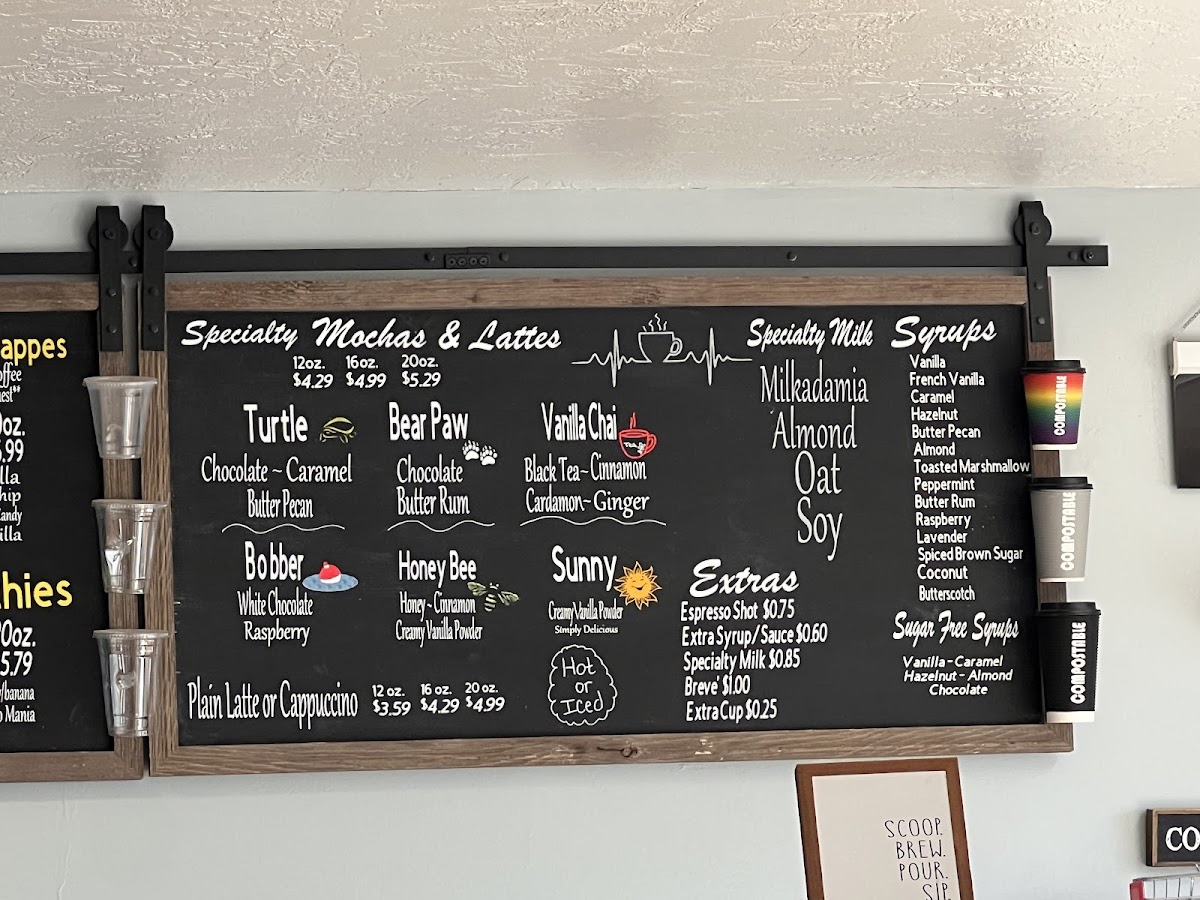 appes
offee
est**
0oz.
5.99
lla
hip
andy
illa
hies
20oz.
5.79
/banana
o Mania
Specialty Mochas & Lattes
12oz. 16oz. 20oz.
$4.29 $4.99 $5.29
Turtle
Chocolate ~ Caramel
Butter Pecan
Bear Paw
Chocolate
Butter Rum
Vanilla Chai
Black Tea~ Cinnamon
Cardamon~ Ginger
Bobber
White Chocolate
Raspberry
Honey Bee
Honey ~ Cinnamon
Creamy Vanilla Powder
Sunny
Creamy Vanilla Powder
Simply Delicious
Plain Latte or Cappuccino
12 oz. 16 oz. 20 oz.
$3.59 $4.29 $4.99
Hot
or
Iced
Specialty Milk
Milkadamia
Almond
Oat
Soy
Extras
Espresso Shot $0.75
Extra Syrup/Sauce $0.60
Specialty Milk $0.85
Breve' $1.00
Extra Cup $0.25
Syrups
Vanilla
French Vanilla
Caramel
Hazelnut
Butter Pecan
Almond
Toasted Marshmallow
Peppermint
Butter Rum
Raspberry
Lavender
Spiced Brown Sugar
Coconut
Butterscotch
Sugar Free Syrups
Vanilla - Caramel
Hazelnut - Almond
Chocolate
COMPOSTABLE
COMPOSTABLE
COMPOSTABLE
SCOOP.
BREW.
POUR.
SIP.
CO